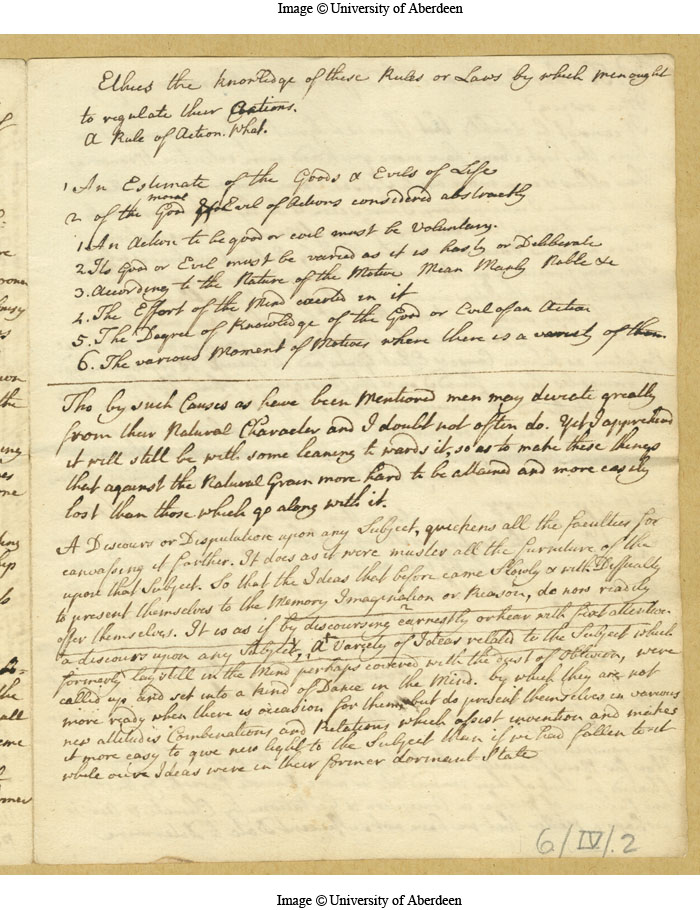 Image © University of Aberdeen
Ethics the knowledge of these Rules or Laws by which men ought
to regulate their Actions.
A Rule of Action. What.
1 An Estimate of the Goods & Evils of Life
2 of the moral Good & Evil of Actions considered abstractly
1. An Action to be good or evil must be Voluntary.
2 Its Good or Evil must be varied as it is hasty or Deliberate
3. According to the Nature of the Motive Mean Manly Noble &c
4. The Effort of the Mind exerted in it
5. The Degree of Knowledge of the Good or Evil of an Action
6. The various Moment of Motives where there is a variety of them.
Tho by such Causes as have been Mentioned men may deviate greatly
from their Natural Character and I doubt not often do. Yet I apprehend
it will still be with some leaning towards it, so as to make these things
that against the Natural Grain more hard to be attained and more easily
lost than those which go along with it.
A Discours or Disputation upon any Subject, quickens all the faculties for
canvassing it farther. It does as it were muster all the furniture of the
upon that Subject. So that the Ideas that before came Slowly & with Difficulty
to present themselves to the Memory Imagination or Reason, do now readily
offer themselves. It is as if by discoursing earnestly or hear with fixd attention
a discours upon any Subject, A Variety of Ideas related to the Subject which
formerly lay still in the Mind perhaps covered with the dust of Oblivion, were
called up and set into a kind of Dance in the Mind. by which they are not
more ready when there is occasion for them but do present themselves in various
new attitudes Combinations and Relations which assist invention and makes
it more easy to give new light to the Subject than if we had fallen to it
while our Ideas were in their former dormant State
6/IV/.2
Image © University of Aberdeen